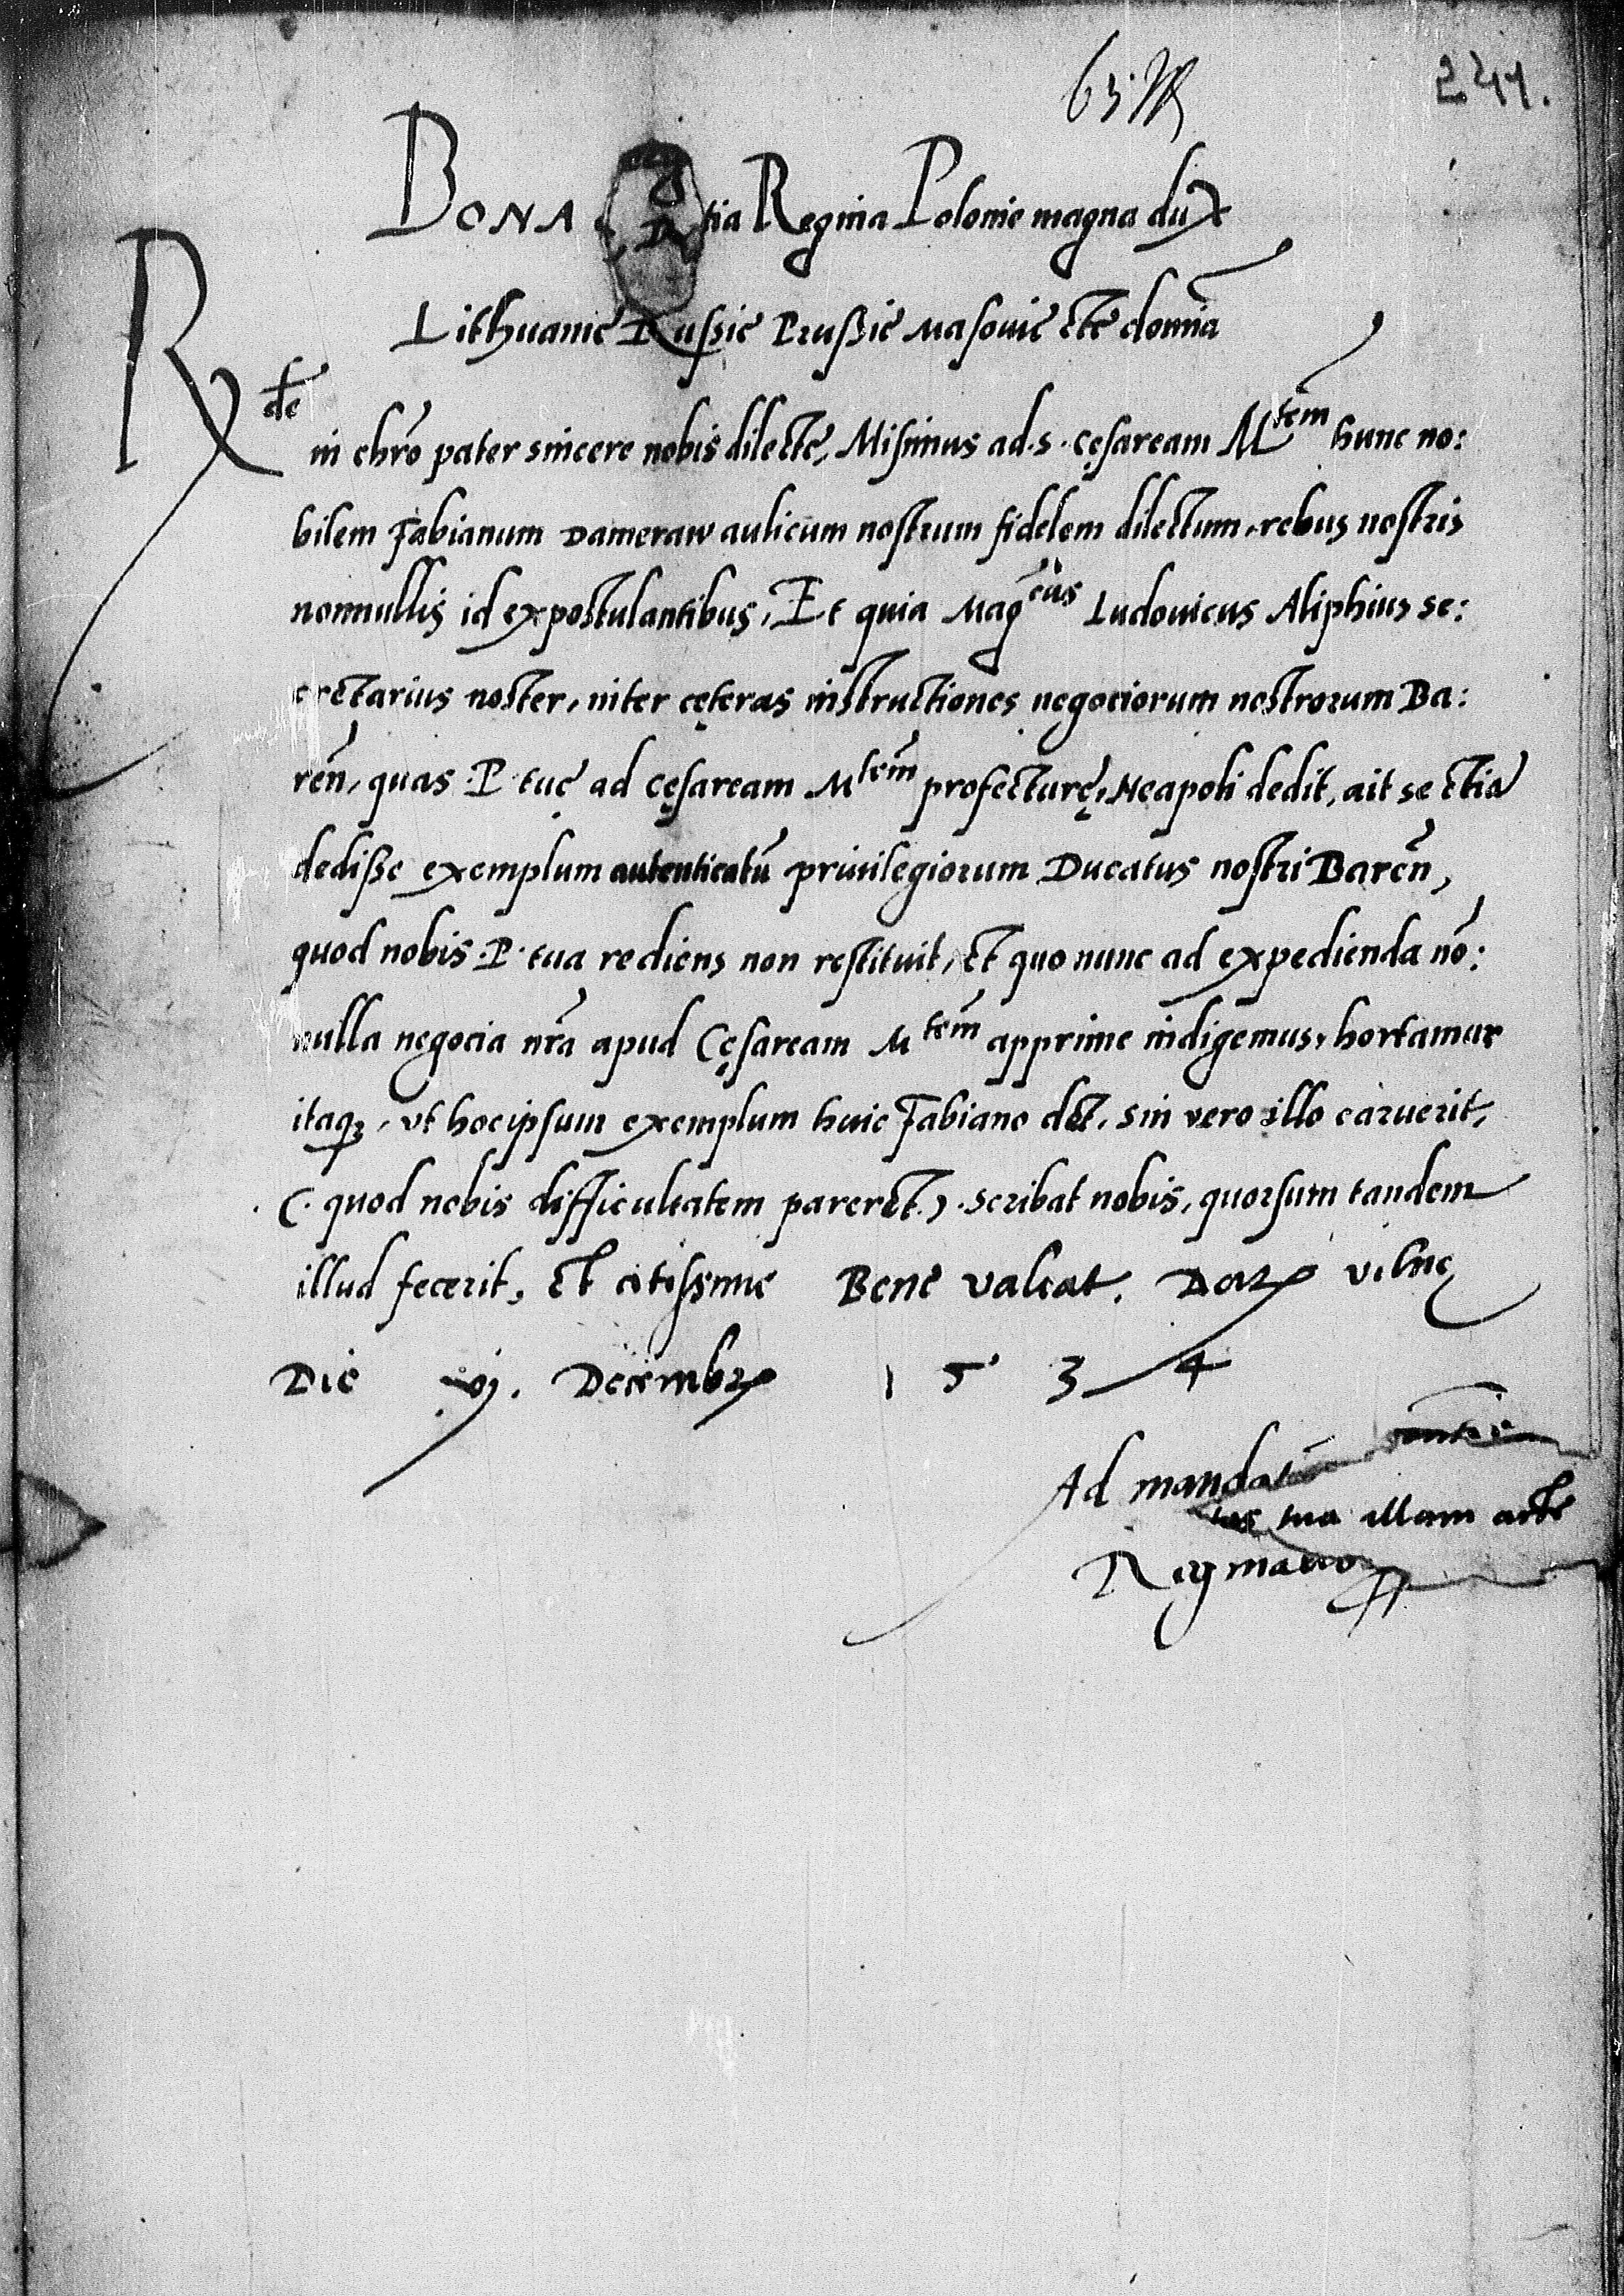 241.
BONA tia Regina Polonie magna dux
Lithuanie Russie Prussie Masovie etc domīa
Rde
in chrō pater sincere nobis dilecte, Misimus ad .s. cęsaream Mtem hunc no:
bilem Fabianum Dameraw aulicum nostrum fidelem dilectum, rebus nostris
nonnullis id expostulantibus, Et quia Magcus Ludovicus Aliphius se:
cretarius noster, inter cęteras instructiones negociorum nostrorum Ba:
reñ, quas .P. tuę ad cęsaream Mtem profecturę, Neapoli dedit, ait se etiā
dedisse exemplum autenticatū privilegiorum Ducatus nostri Bareñ,
quod nobis .P. tua rediens non restituit, et quo nunc ad expedienda nō:
nulla negocia nrā apud Cęsaream Mtem apprime indigemus, hortamur
itaqȝ, ut hoc ipsum exemplum huic Fabiano det, sin vero illo caruerit,
(. quod nobis difficultatem pareret .) scribat nobis, quorsum tandem
illud fecerit, et citissime Bene valeat. Datȝ vilnę
Die vj. Decembrȝ 1534
Ad mandatū
tas tua illam